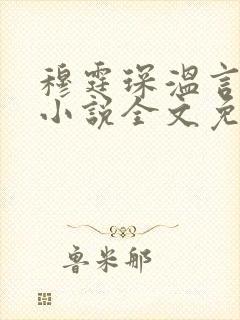 穆霆琛温言
小说全文免
鲁米那